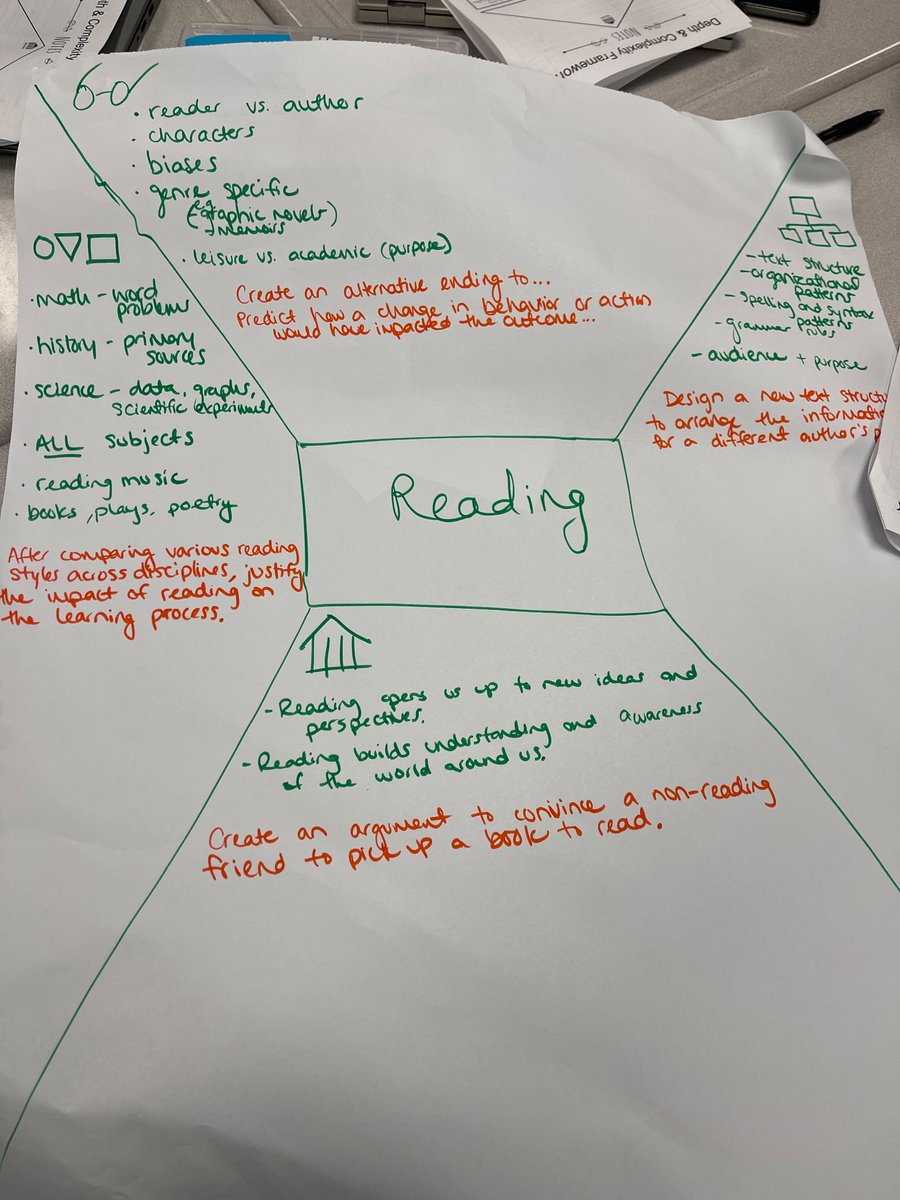 th & Complexity
NOTES
Depth & Complexity Framework
NOTES
· reader vs. author
· characters
· biases
· genre specific
(e.g. graphic novels)
+ memoirs
· leisure vs. academic (purpose)
Create an alternative ending to...
Predict how a change in behavior or action
would have impacted the outcome...
· math - word
problems
· history - primary
sources
· science - data, graphs,
scientific experiments
· ALL subjects
· reading music
· books, plays, poetry
After comparing various reading
styles across disciplines, justify
the impact of reading on
the learning process.
- text structure
- organizational
patterns
- spelling and syntax
patterns
- grammar rules
- audience + purpose
Design a new text structu
to arrange the informati
for a different author's p
Reading
- Reading opens us up to new ideas and
perspectives.
- Reading builds understanding and awareness
of the world around us.
Create an argument to convince a non-reading
friend to pick up a book to read.